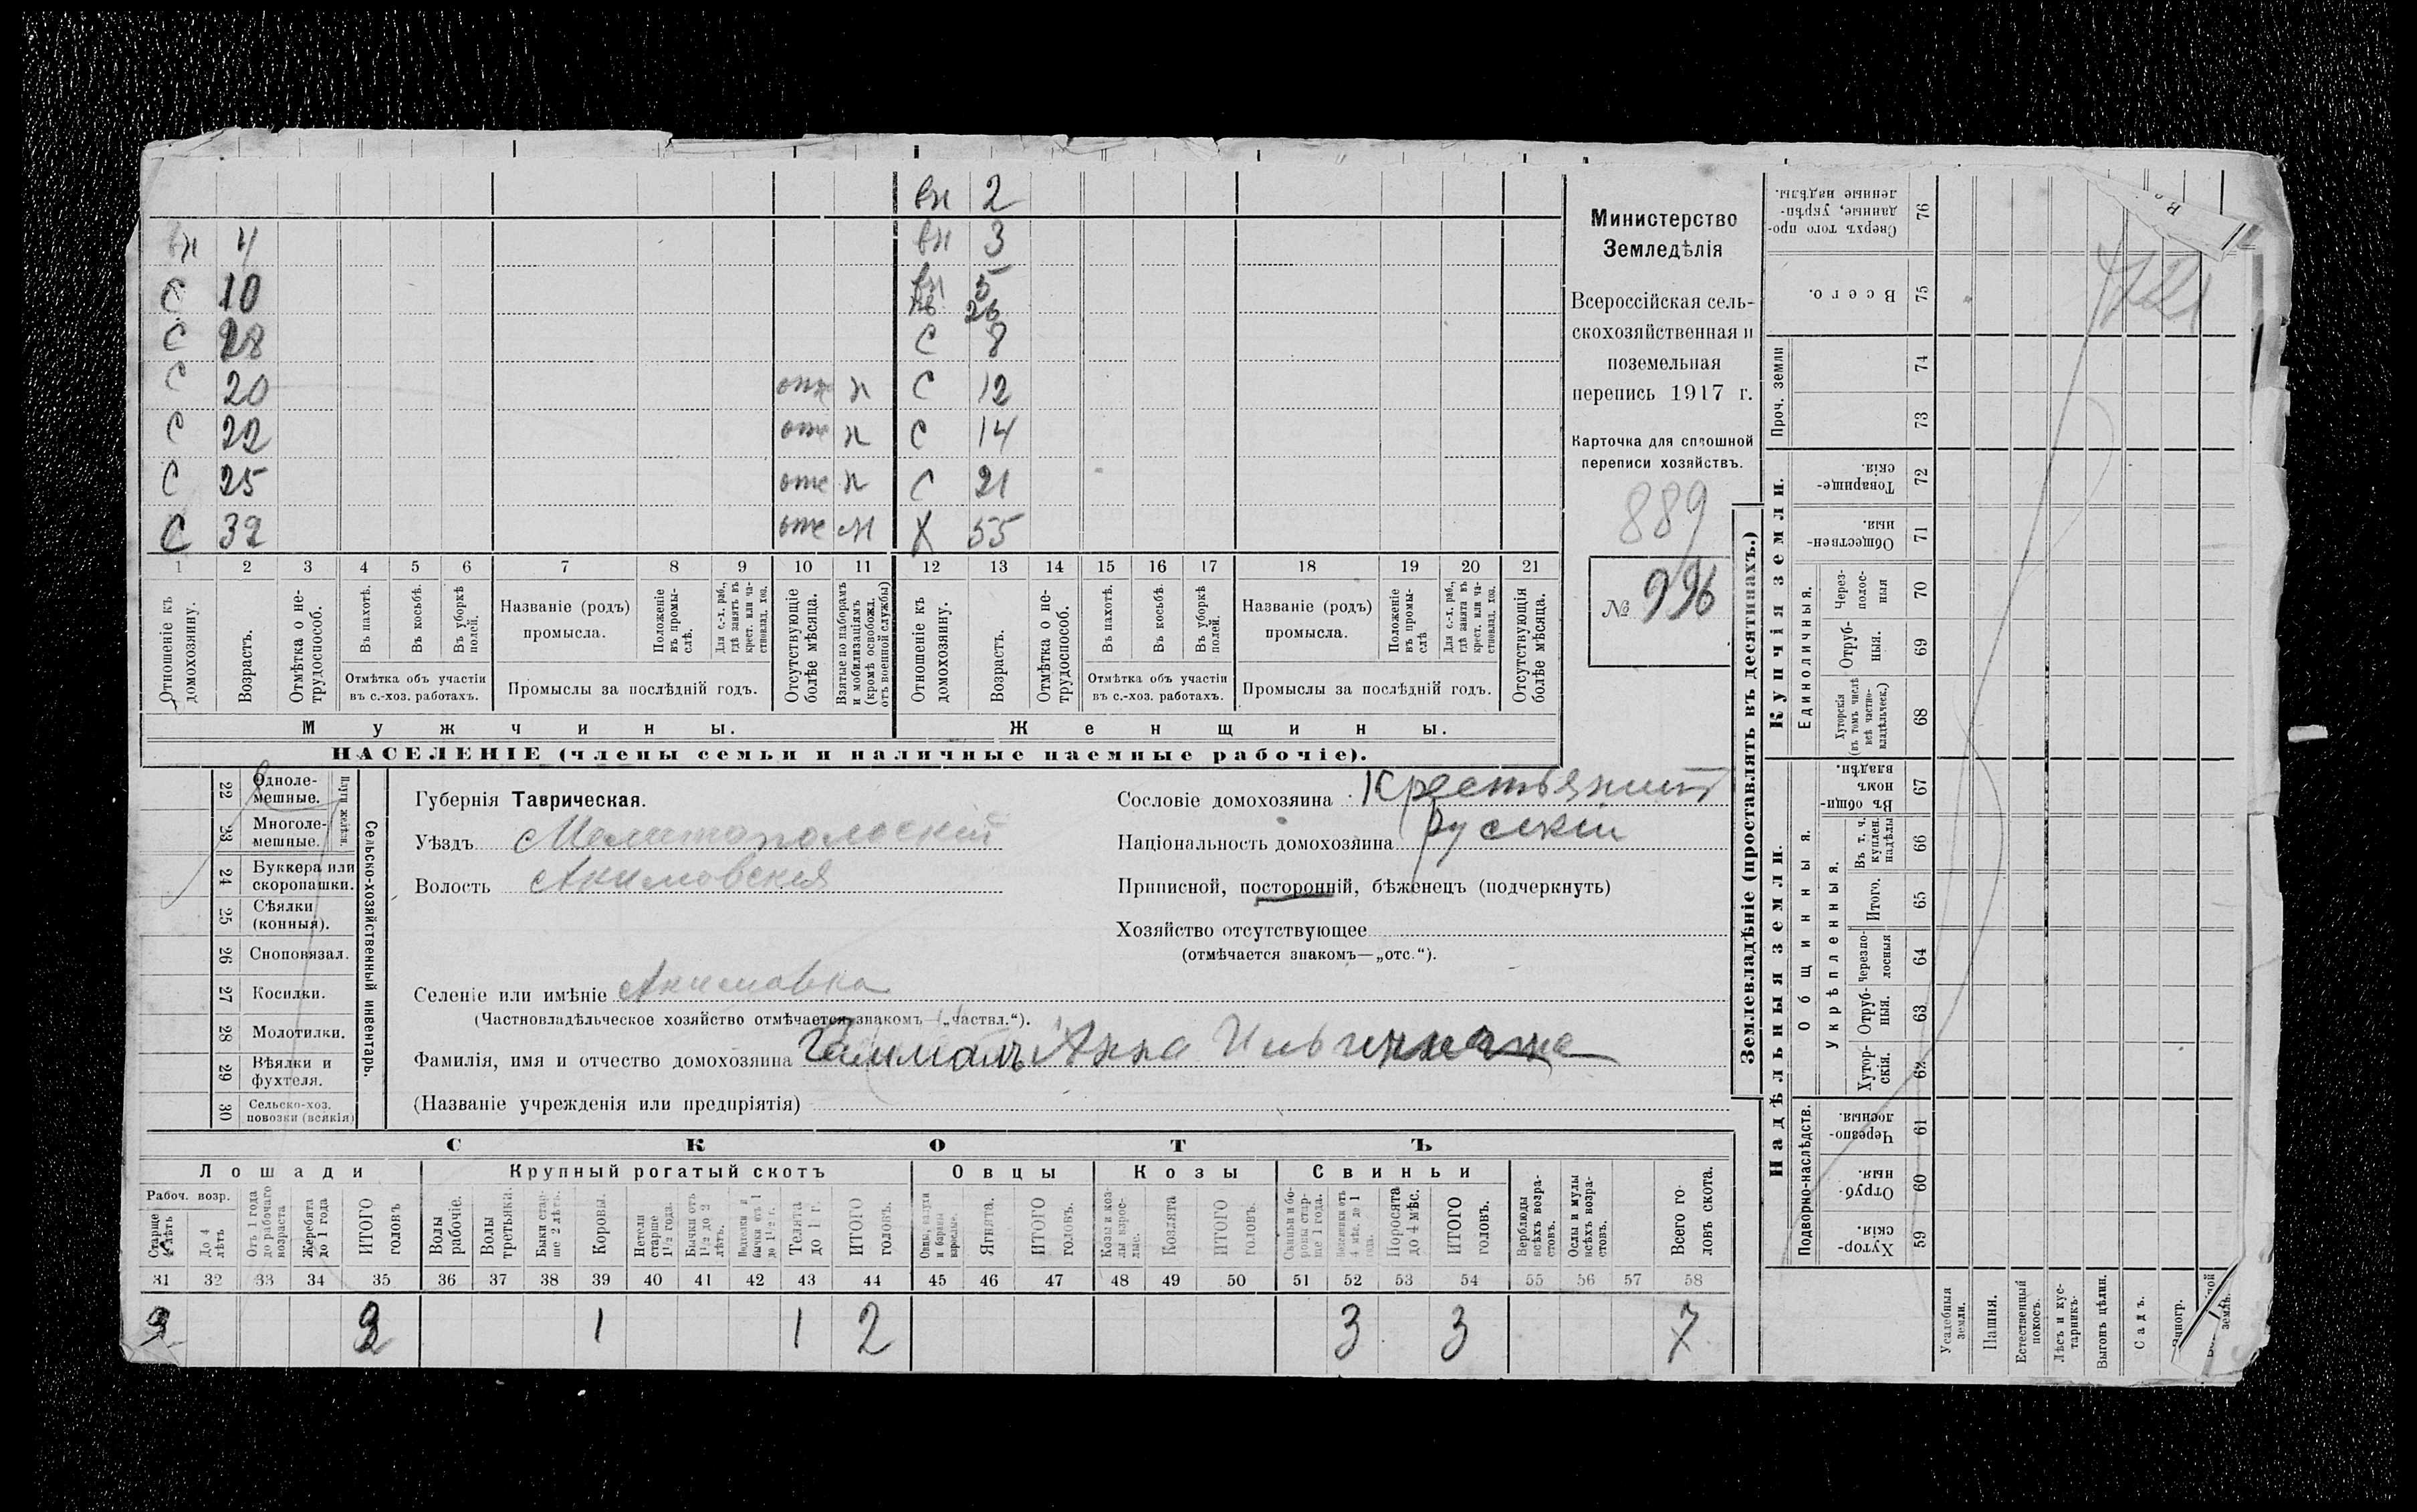 вн 2
вн 4 вн 3
С 10 вн 5
нв 26
С 28 С 8
С 20 отс н С 12
С 22 отс н С 14
С 25 отс н С 21
С 32 отс м Х 55
1 2 3 4 5 6 7 8 9 10 11 12 13 14 15 16 17 18 19 20 21
Отношеніе къ домохозяину.
Возрастъ.
Отмѣтка о не-трудоспособ.
Въ пахотѣ.
Въ косьбѣ.
Въ уборкѣ полей.
Отмѣтка объ участіи
въ с.-хоз. работахъ.
Названіе (родъ)
промысла.
Положеніе въ промы-слѣ.
Для с.-х. раб., гдѣ занятъ въ крест. или ча-стновлад. хоз.
Промыслы за послѣдній годъ.
Отсутствующіе болѣе мѣсяца.
Взятые по наборамъ и мобилизаціямъ (кромѣ освобожд. отъ военной службы)
Отношеніе къ домохозяину.
Возрастъ.
Отмѣтка о не-трудоспособ.
Въ пахотѣ.
Въ косьбѣ.
Въ уборкѣ полей.
Отмѣтка объ участіи
въ с.-хоз. работахъ.
Названіе (родъ)
промысла.
Положеніе въ промы-слѣ
Для с.-х. раб., гдѣ занята въ крест. или ча-стновлад. хоз.
Промыслы за послѣдній годъ.
Отсутствующія болѣе мѣсяца.
Мужчины. Женщины.
НАСЕЛЕНІЕ (члены семьи и наличные наемные рабочіе).
Министерство
Земледѣлія
Всероссійская сель-
скохозяйственная и
поземельная
перепись 1917 г.
Карточка для сплошной
переписи хозяйствъ.
889
№ 996
22 Одноле-
мешные.
23 Многоле-
мешные.
Плуги желѣзн.
24 Буккера или
скоропашки.
25 Сѣялки
(конныя).
26 Сноповязал.
27 Косилки.
28 Молотилки.
29 Вѣялки и
фухтеля.
30 Сельско-хоз.
повозки (всякія)
Сельско-хозяйственный инвентарь.
Губернія Таврическая.
Уѣздъ Мелитопольскій
Волость Акимовская
Сословіе домохозяина Крестьянин
Національность домохозяина Русский
Приписной, посторонній, бѣженецъ (подчеркнуть)
Хозяйство отсутствующее
(отмѣчается знакомъ—„отс.“).
Селеніе или имѣніе Акимовка
(Частновладѣльческое хозяйство отмѣчается знакомъ—„частвл.“).
Фамилія, имя и отчество домохозяина Анна
(Названіе учрежденія или предпріятія)
СКОТЪ
Лошади Крупный рогатый скотъ Овцы Козы Свиньи
Рабоч. возр.
Старше 4 лѣтъ
До 4 лѣтъ
Отъ 1 года до рабочаго возраста
Жеребята до 1 года
ИТОГО головъ
Волы рабочіе.
Волы третьяки.
Быки стар-ше 2 лѣтъ.
Коровы.
Нетели старше 1½ года.
Бычки отъ 1½ до 2 лѣтъ.
Подтелки и бычки отъ 1 до 1½ г.
Телята до 1 г.
ИТОГО головъ.
Овцы, валухи и бараны взрослые.
Ягнята.
ИТОГО головъ.
Козы и коз-лы взрос-лые.
Козлята
ИТОГО головъ.
Свиньи и бо-ровы стар-ше 1 года.
Подсвинки отъ 4 мѣс. до 1 года.
Поросята до 4 мѣс.
ИТОГО головъ.
Верблюды всѣхъ возра-стовъ.
Ослы и мулы всѣхъ возра-стовъ.
Всего го-ловъ скота.
31 32 33 34 35 36 37 38 39 40 41 42 43 44 45 46 47 48 49 50 51 52 53 54 55 56 57 58
2 2 1 1 2 3 3 7
Землевладѣніе (проставлять въ десятинахъ.)
Надѣльныя земли. Купчія земли.
Подворно-наслѣдств.
Общинныя.
Укрѣпленныя.
Единоличныя.
Проч. земли
Хутор-скія. 59
Отруб-ныя. 60
Черезпо-лосныя. 61
Хутор-скія. 62
Отруб-ныя. 63
Черезпо-лосныя 64
Итого. 65
Въ т. ч. куплен. надѣлы 66
Въ общин-номъ владѣн. 67
Хуторскія (въ томъ числѣ всѣ частно-владѣльческ.) 68
Отруб-ныя. 69
Через-полос-ныя 70
Обществен-ныя. 71
Товарище-скія. 72
73
74
Всего. 75
Сверхъ того про-данные, укрѣп-ленные надѣлы. 76
Усадебныя земли.
Пашня.
Естественный покосъ.
Лѣсъ и кус-тарникъ.
Выгонъ цѣлин.
Садъ.
Виногр.